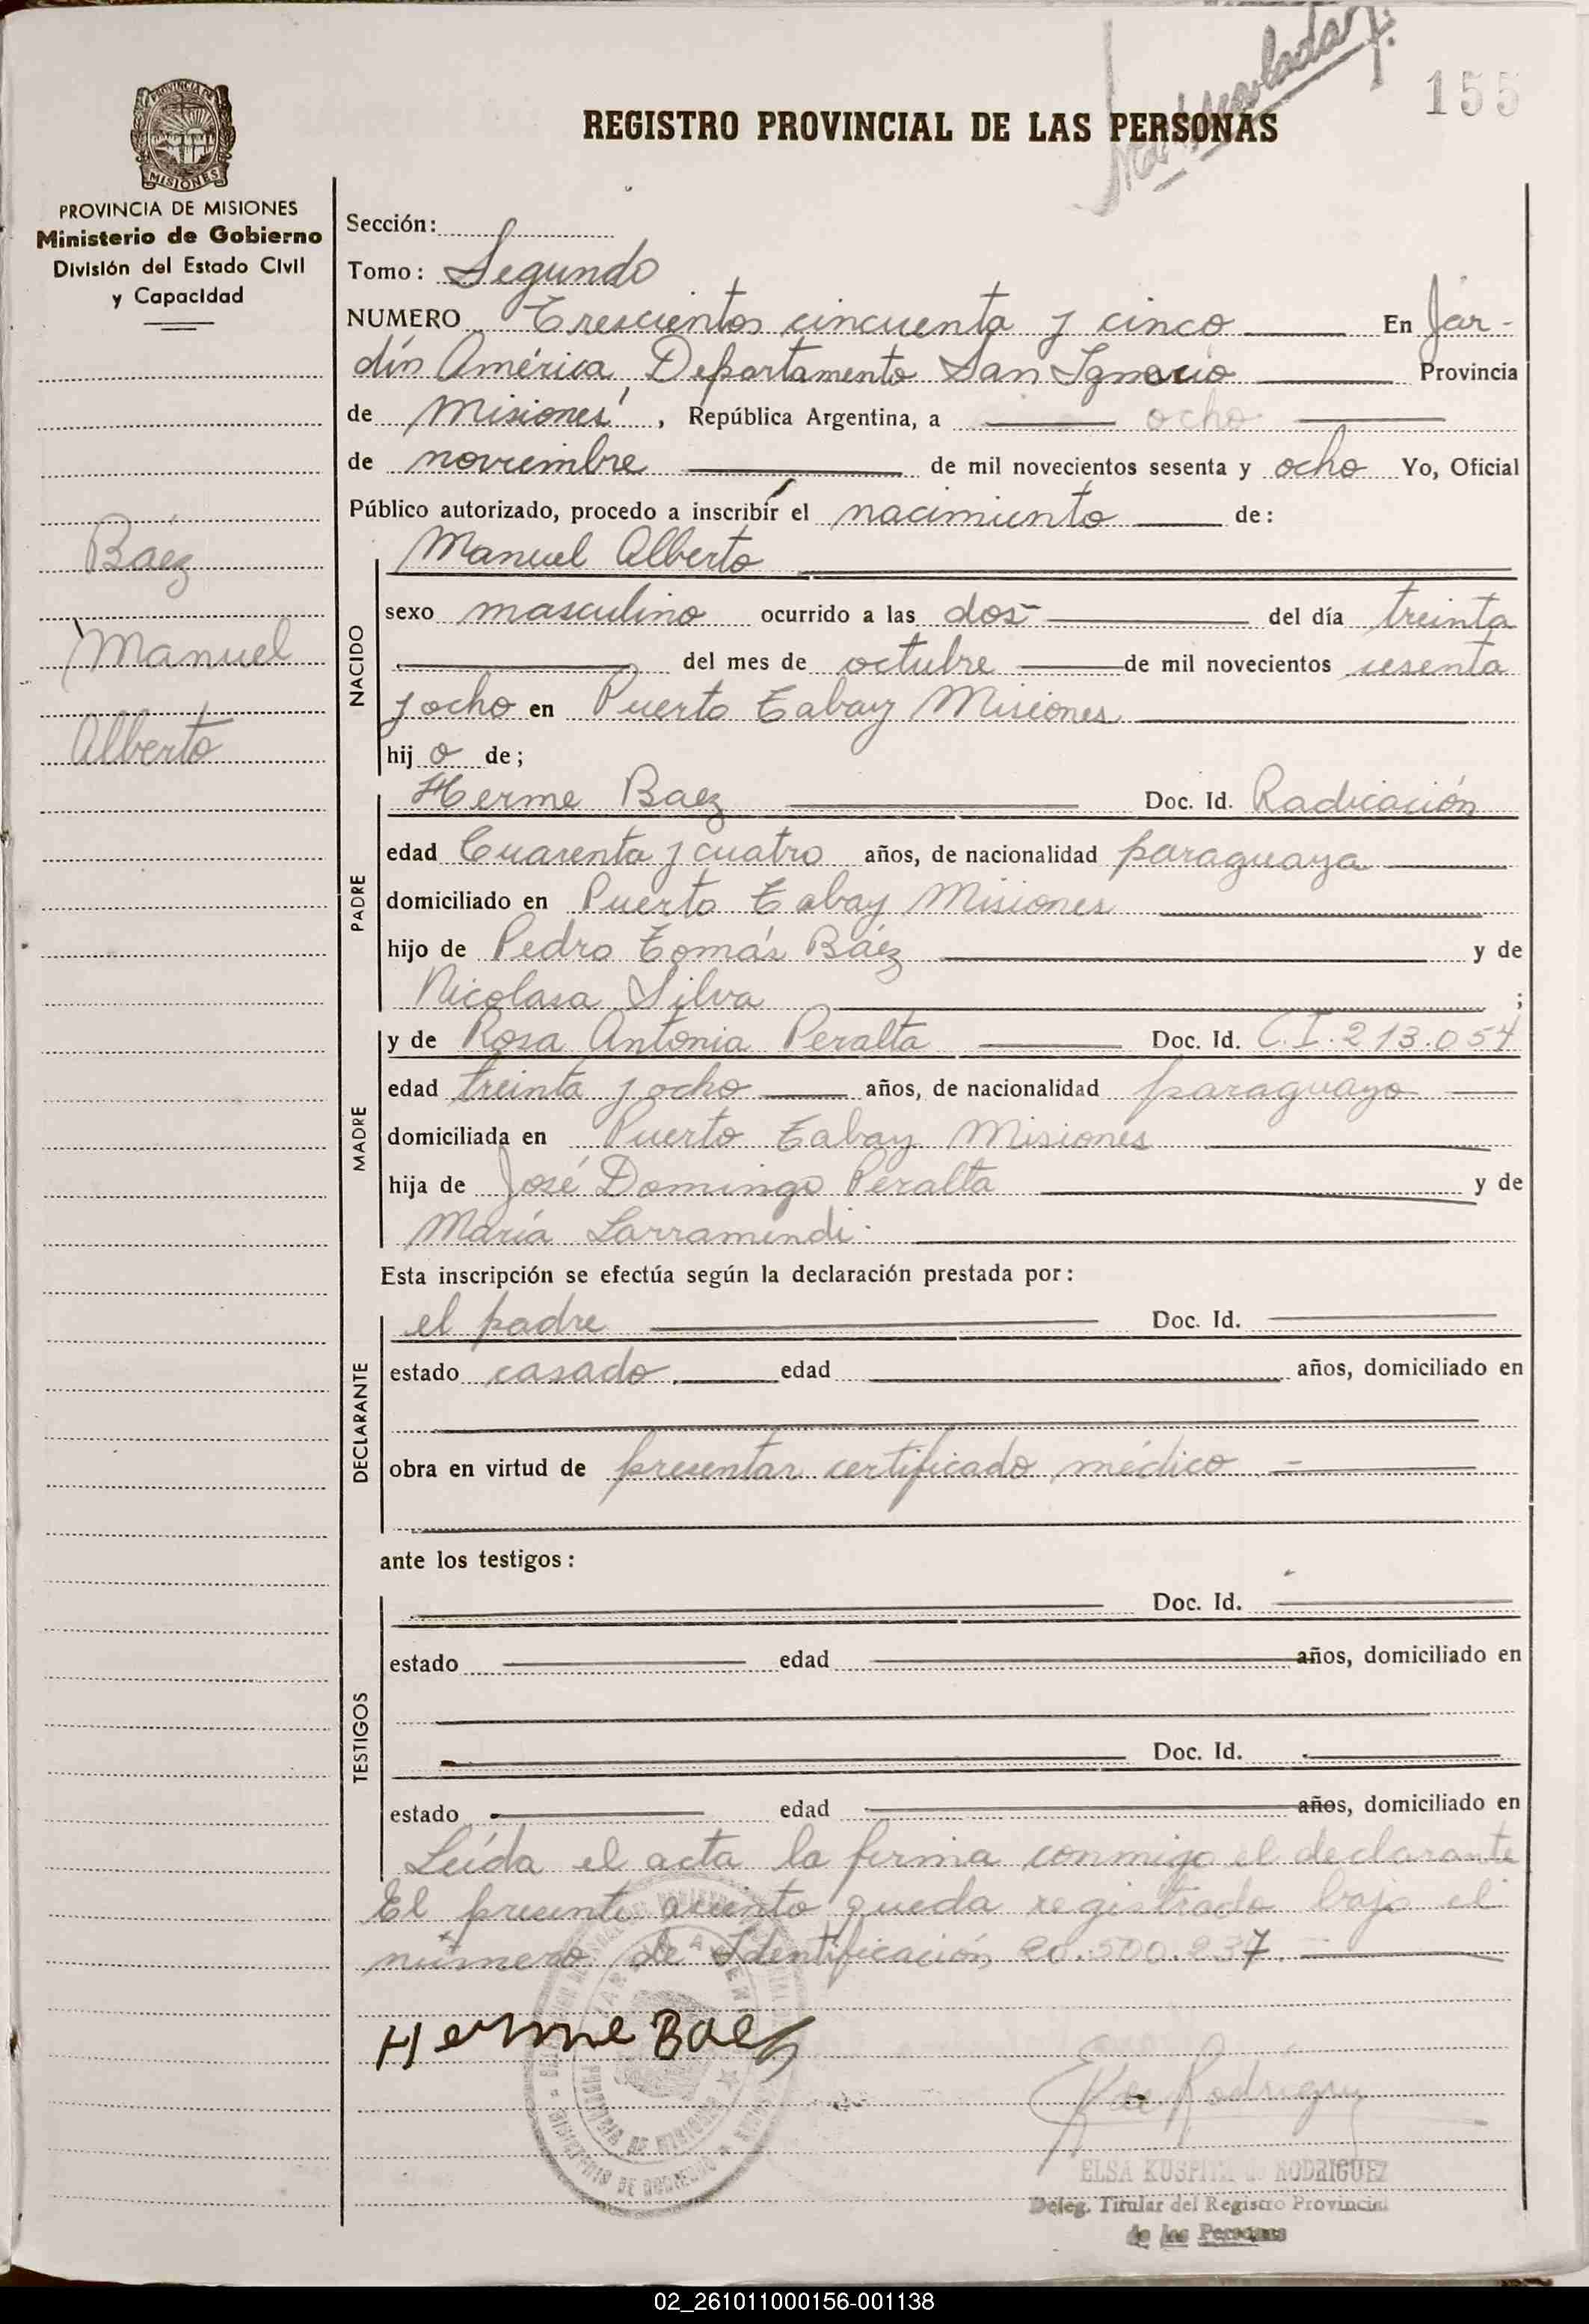 155
REGISTRO PROVINCIAL DE LAS PERSONAS
PROVINCIA DE
MISIONES
PROVINCIA DE MISIONES
Ministerio de Gobierno
División del Estado Civil
y Capacidad
Báez
Manuel
Alberto
Sección:
Tomo: Segundo
NUMERO Trescientos cincuenta y cinco En Jar-
dín América, Departamento San Ignacio Provincia
de Misiones, República Argentina, a ocho
de noviembre de mil novecientos sesenta y ocho Yo, Oficial
Público autorizado, procedo a inscribir el nacimiento de:
NACIDO
Manuel Alberto
sexo masculino ocurrido a las dos del día treinta
del mes de octubre de mil novecientos sesenta
y ocho en Puerto Tabay Misiones
hijo de;
PADRE
Herme Baez Doc. Id. Radicación
edad Cuarenta y cuatro años, de nacionalidad paraguaya
domiciliado en Puerto Tabay Misiones
hijo de Pedro Tomás Báez y de
Nicolasa Silva ;
MADRE
y de Rosa Antonia Peralta Doc. Id. C.I. 213.054
edad treinta y ocho años, de nacionalidad paraguaya
domiciliada en Puerto Tabay Misiones
hija de José Domingo Peralta y de
María Larramendi.
Esta inscripción se efectúa según la declaración prestada por:
DECLARANTE
el padre Doc. Id.
estado casado. edad años, domiciliado en
obra en virtud de presentar certificado médico.-
ante los testigos:
TESTIGOS
Doc. Id.
estado edad años, domiciliado en
Doc. Id.
estado edad años, domiciliado en
Leída el acta la firma conmigo el declarante
El presente asiento queda registrado bajo el
número de Identificación 20.500.237.
Herme Baez
Rodriguez
ELSA de RODRIGUEZ
Deleg. Titular del Registro Provincial
de las Personas
02_261011000156-001138